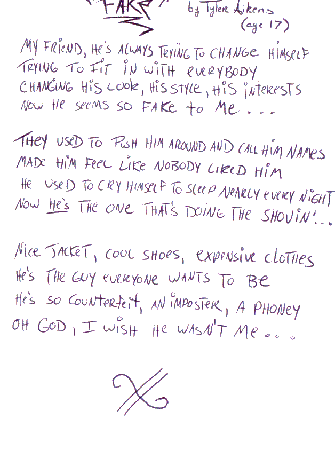 "FAKE"
by Tyler Aikens
(age 17)
MY FRIEND, HE'S ALWAYS TRYING TO CHANGE HIMSELF
TRYING TO FIT IN WITH EVERYBODY
CHANGING HIS LOOK, HIS STYLE, HIS INTERESTS
NOW HE SEEMS SO FAKE TO ME....
THEY USED TO PUSH HIM AROUND AND CALL HIM NAMES
MADE HIM FEEL LIKE NOBODY LIKED HIM
HE USED TO CRY HIMSELF TO SLEEP NEARLY EVERY NIGHT
NOW HE'S THE ONE THAT'S DOING THE SHOVIN'...
NICE JACKET, COOL SHOES, EXPENSIVE CLOTHES
HE'S THE GUY EVERYONE WANTS TO BE
HE'S SO COUNTERFEIT, AN IMPOSTER, A PHONEY
OH GOD, I WISH HE WASN'T ME....